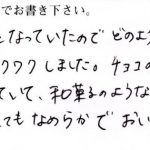 でお書き下さい。
となっていたので どのよう
ワクワクしました。チョコの
ていて、和菓子のような
ても なめらかで おい